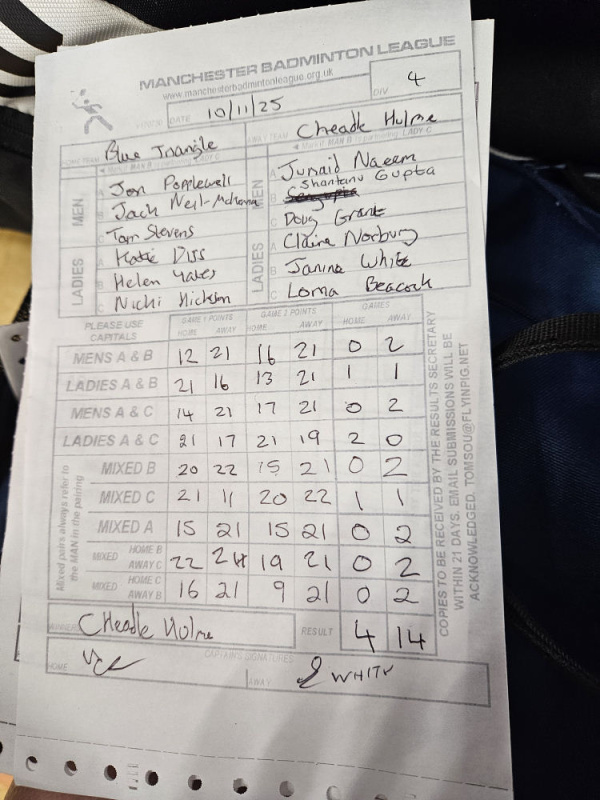 MANCHESTER BADMINTON LEAGUE
www.manchesterbadmintonleague.org.uk
DATE 10/11/25 DIV 4
HOME TEAM Blue Triangle AWAY TEAM Cheadle Hulme
MEN A Jon Popplewell MEN A Junaid Naeem
B Jack B Shantanu Gupta
C Tom Stevens C Doug Grant
LADIES A Katie Diss LADIES A Claire Norbury
B Helen Yates B Janine White
C Nicki Hickson C Lorna Beacock
PLEASE USE CAPITALS GAME 1 POINTS GAME 2 POINTS GAMES
HOME AWAY HOME AWAY HOME AWAY
MENS A & B 12 21 16 21 0 2
LADIES A & B 21 16 13 21 1 1
MENS A & C 14 21 17 21 0 2
LADIES A & C 21 17 21 19 2 0
MIXED B 20 22 15 21 0 2
MIXED C 21 11 20 22 1 1
MIXED A 15 21 15 21 0 2
MIXED HOME B AWAY C 22 24 19 21 0 2
MIXED HOME C AWAY B 16 21 9 21 0 2
Mixed pairs always refer to the MAN in the pairing
WINNER Cheadle Hulme RESULT 4 14
CAPTAIN'S SIGNATURES
HOME AWAY J WHITE
COPIES TO BE RECEIVED BY THE RESULTS SECRETARY
WITHIN 21 DAYS. EMAIL SUBMISSIONS WILL BE
ACKNOWLEDGED. TOMSOU@FLYINPIG.NET